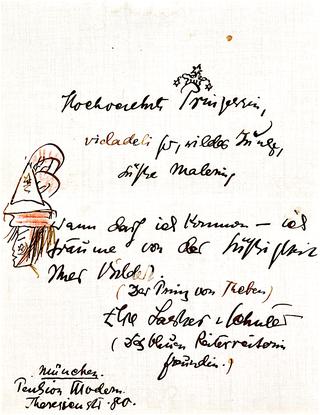 Hochverehrte Prinzessin,
wilder Junge,
süße Malerin,
Wann darf ich kommen — ich
träume von der Süßigkeit
Ihrer Bilder.
(Der Prinz von Theben)
Else Lasker-Schüler
(Des blauen Reiterreiterin
Freundin.)
München.
Pension Modern.
Theresienstr. 80.